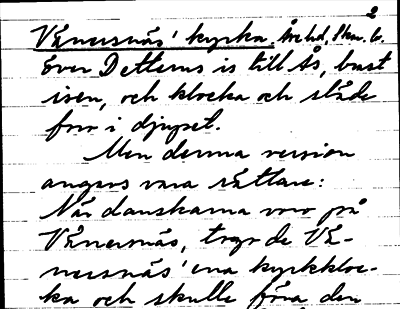 2
Vänersnäs' kyrka.
över Detterns is till Ås, brast
isen, och klocka och släde
for i djupet.
Men denna version
angavs vara rättare:
När danskarna voro på
Vänersnäs, togo de Vä-
nersnäs'ena kyrkkloc-
ka och skulle föra den